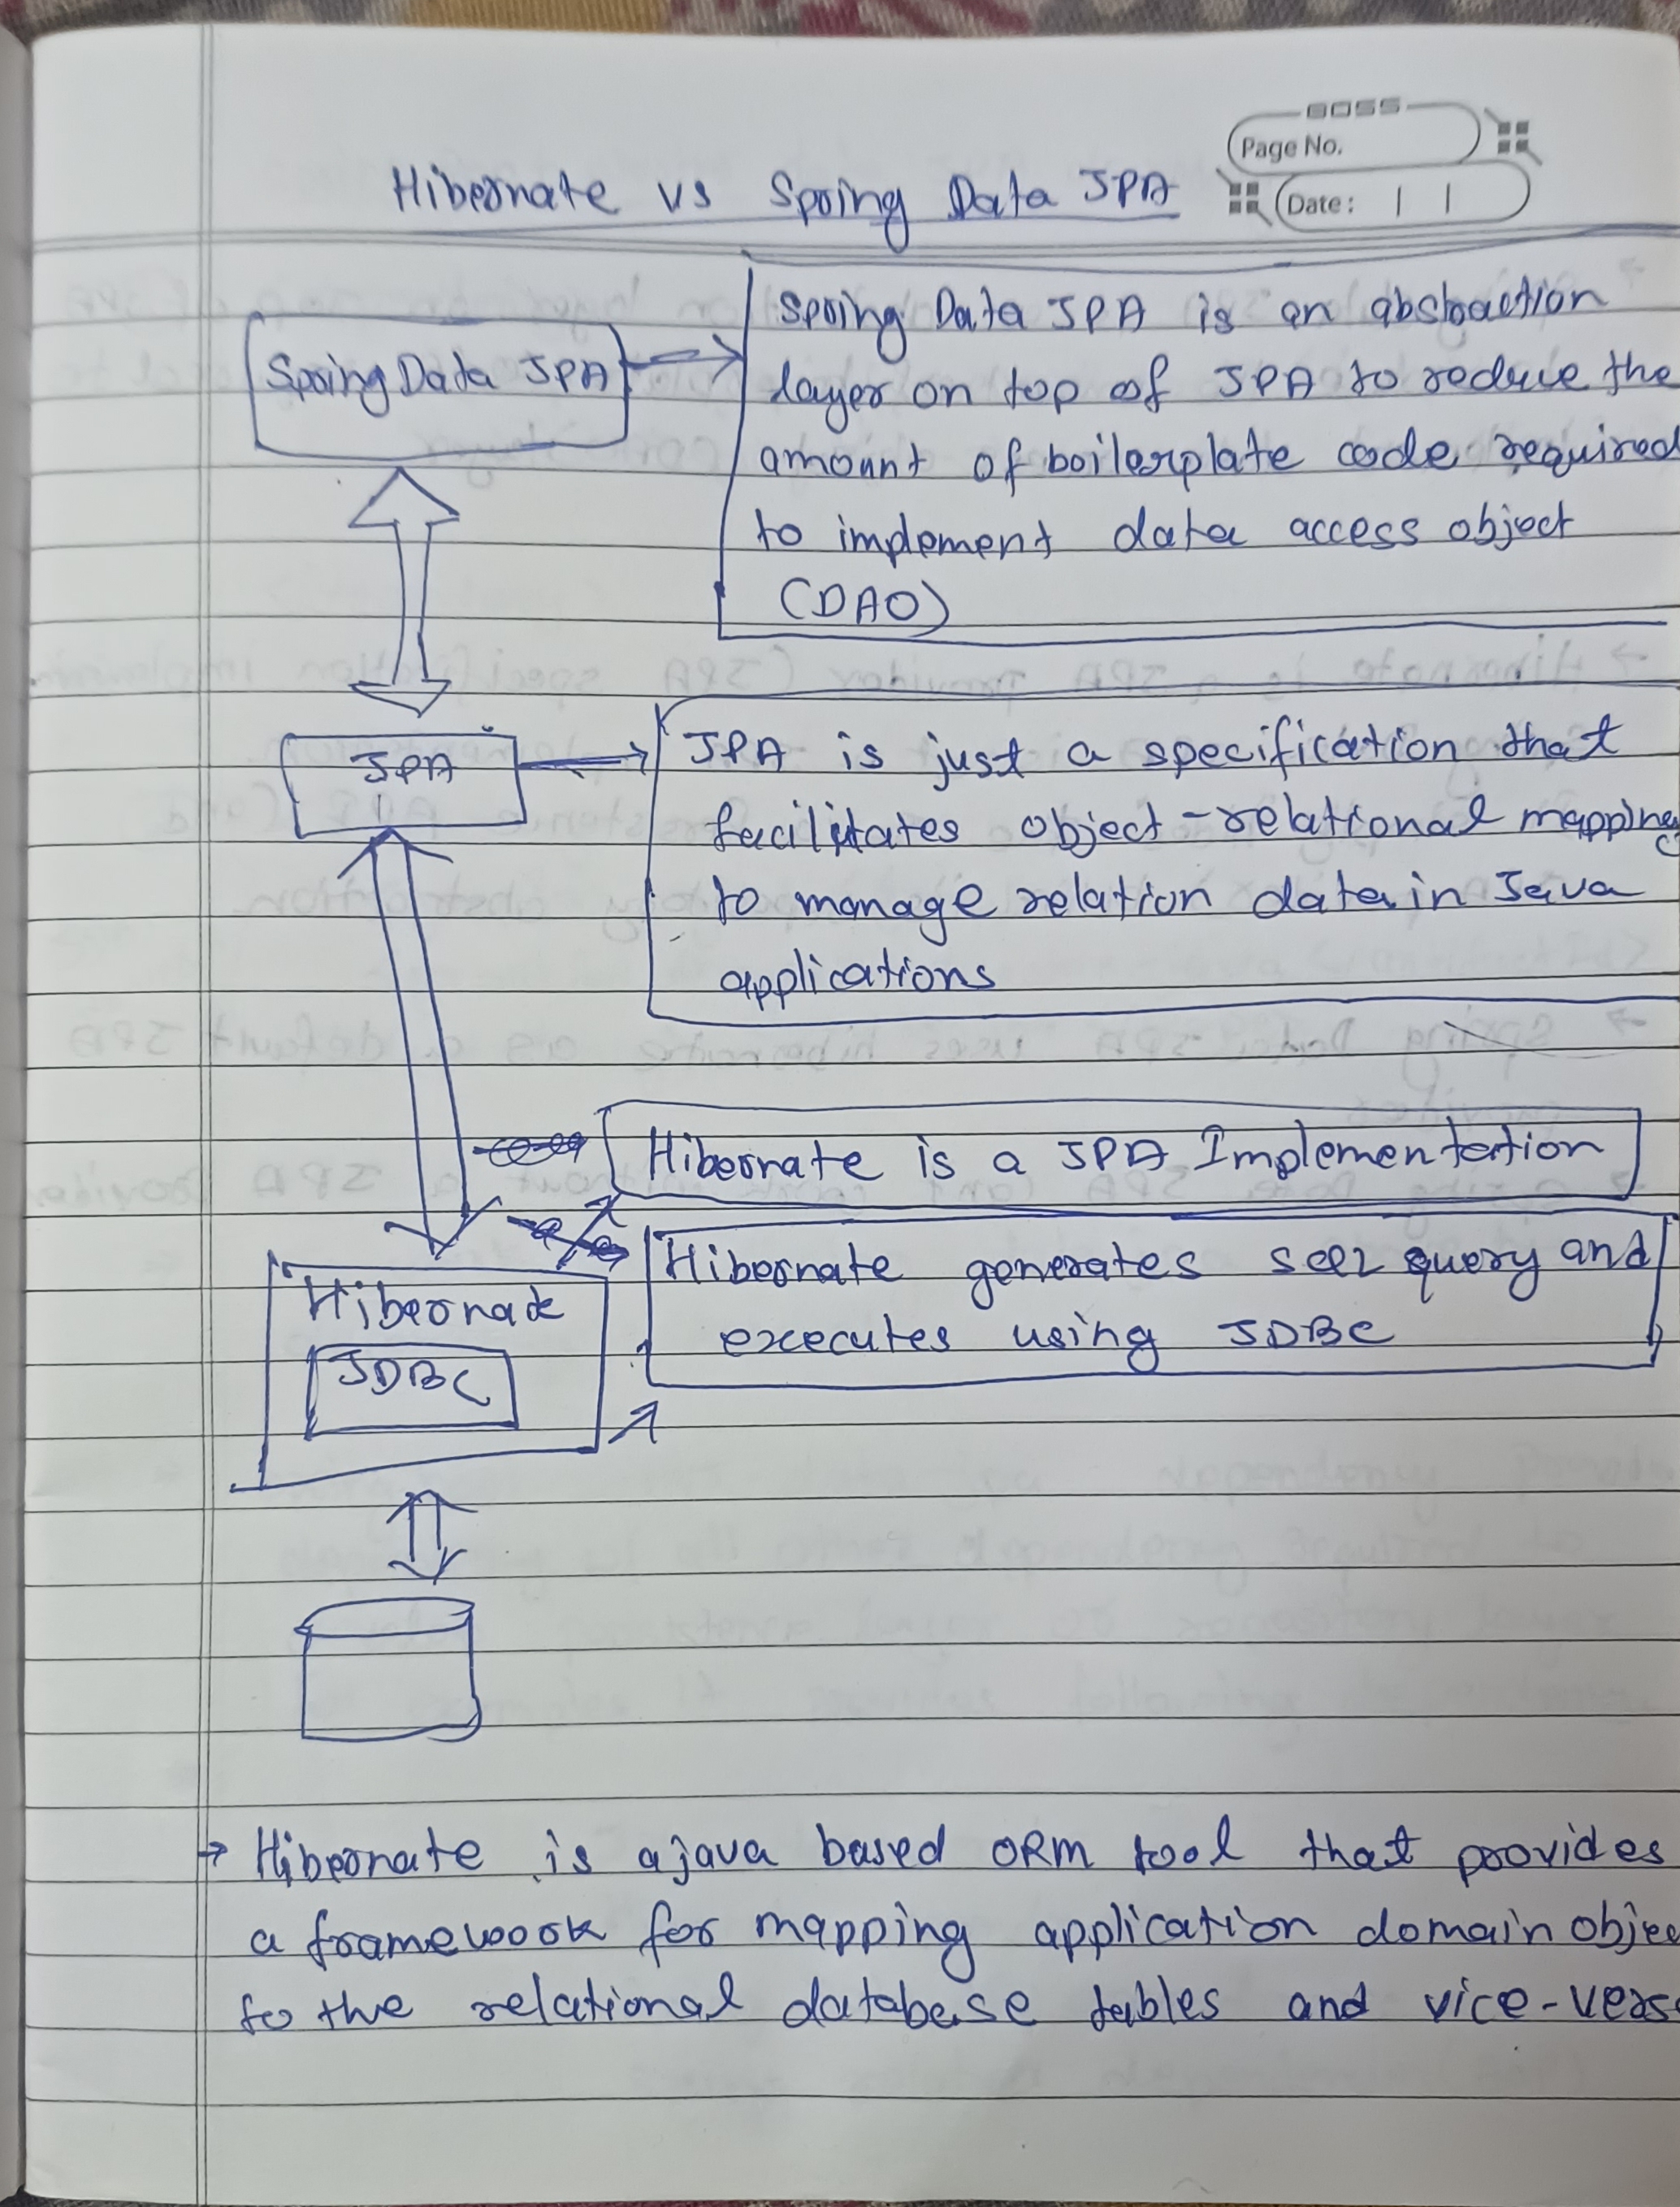 BOSS
Page No.
Date:
Hibernate vs Spring Data JPA
Spring Data JPA
Spring Data JPA is an abstraction
layer on top of JPA to reduce the
amount of boilerplate code required
to implement data access object
(DAO)
JPA
JPA is just a specification that
facilitates object-relational mapping
to manage relation data in Java
applications
Hibernate is a JPA Implementation
Hibernate generates SQL query and
executes using JDBC
Hibernate
JDBC
→ Hibernate is a java based ORM tool that provides
a framework for mapping application domain objec
to the relational database tables and vice-vers